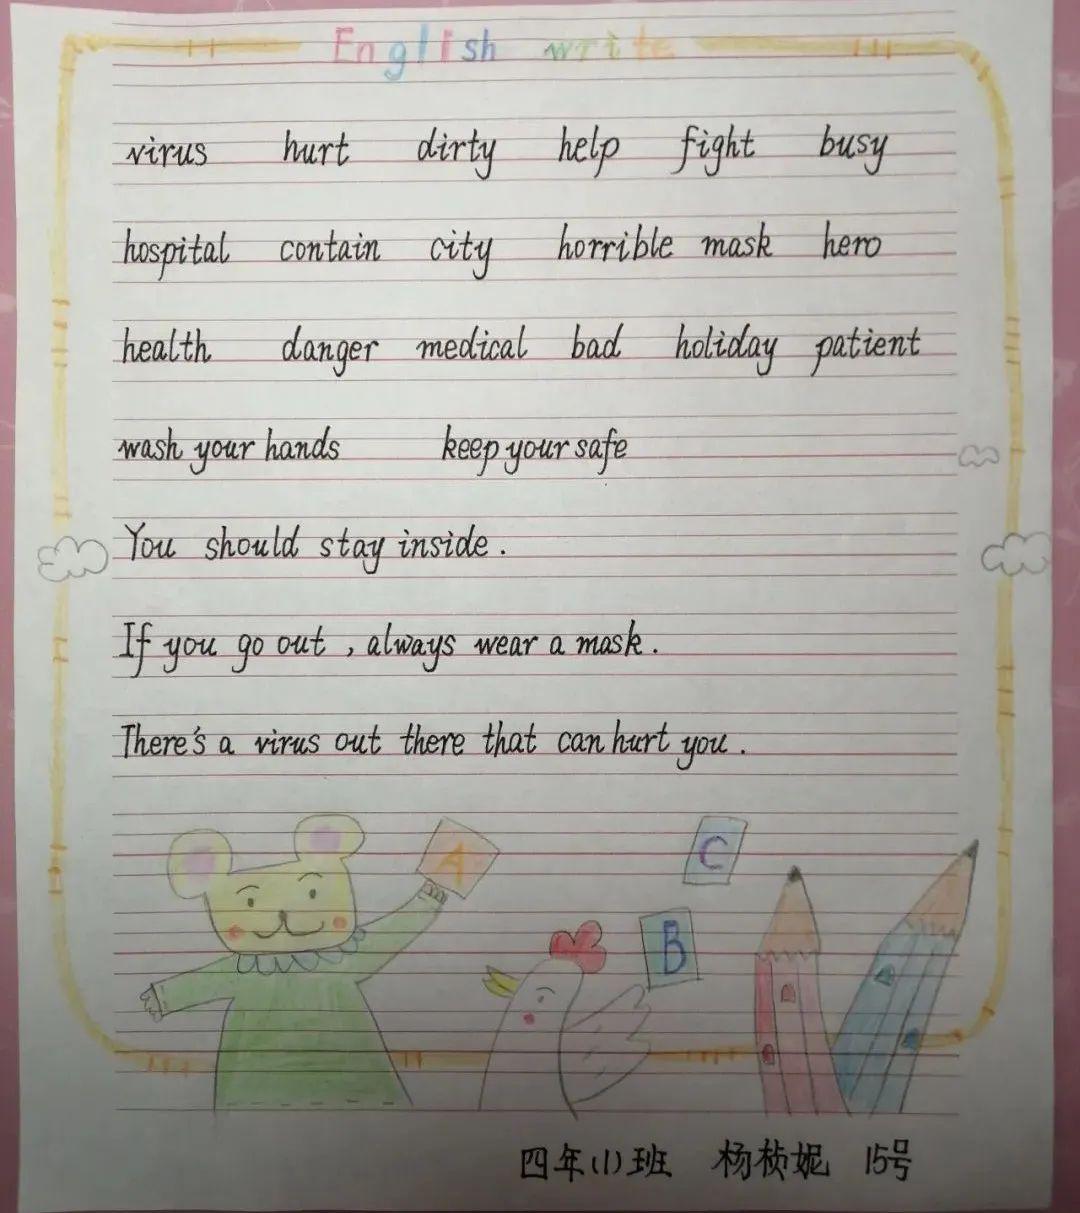 English write
virus hurt dirty help fight busy
hospital contain city horrible mask hero
health danger medical bad holiday patient
wash your hands keep your safe
You should stay inside.
If you go out, always wear a mask.
There's a virus out there that can hurt you.
A
C
B
四年(1)班 杨桢妮 15号